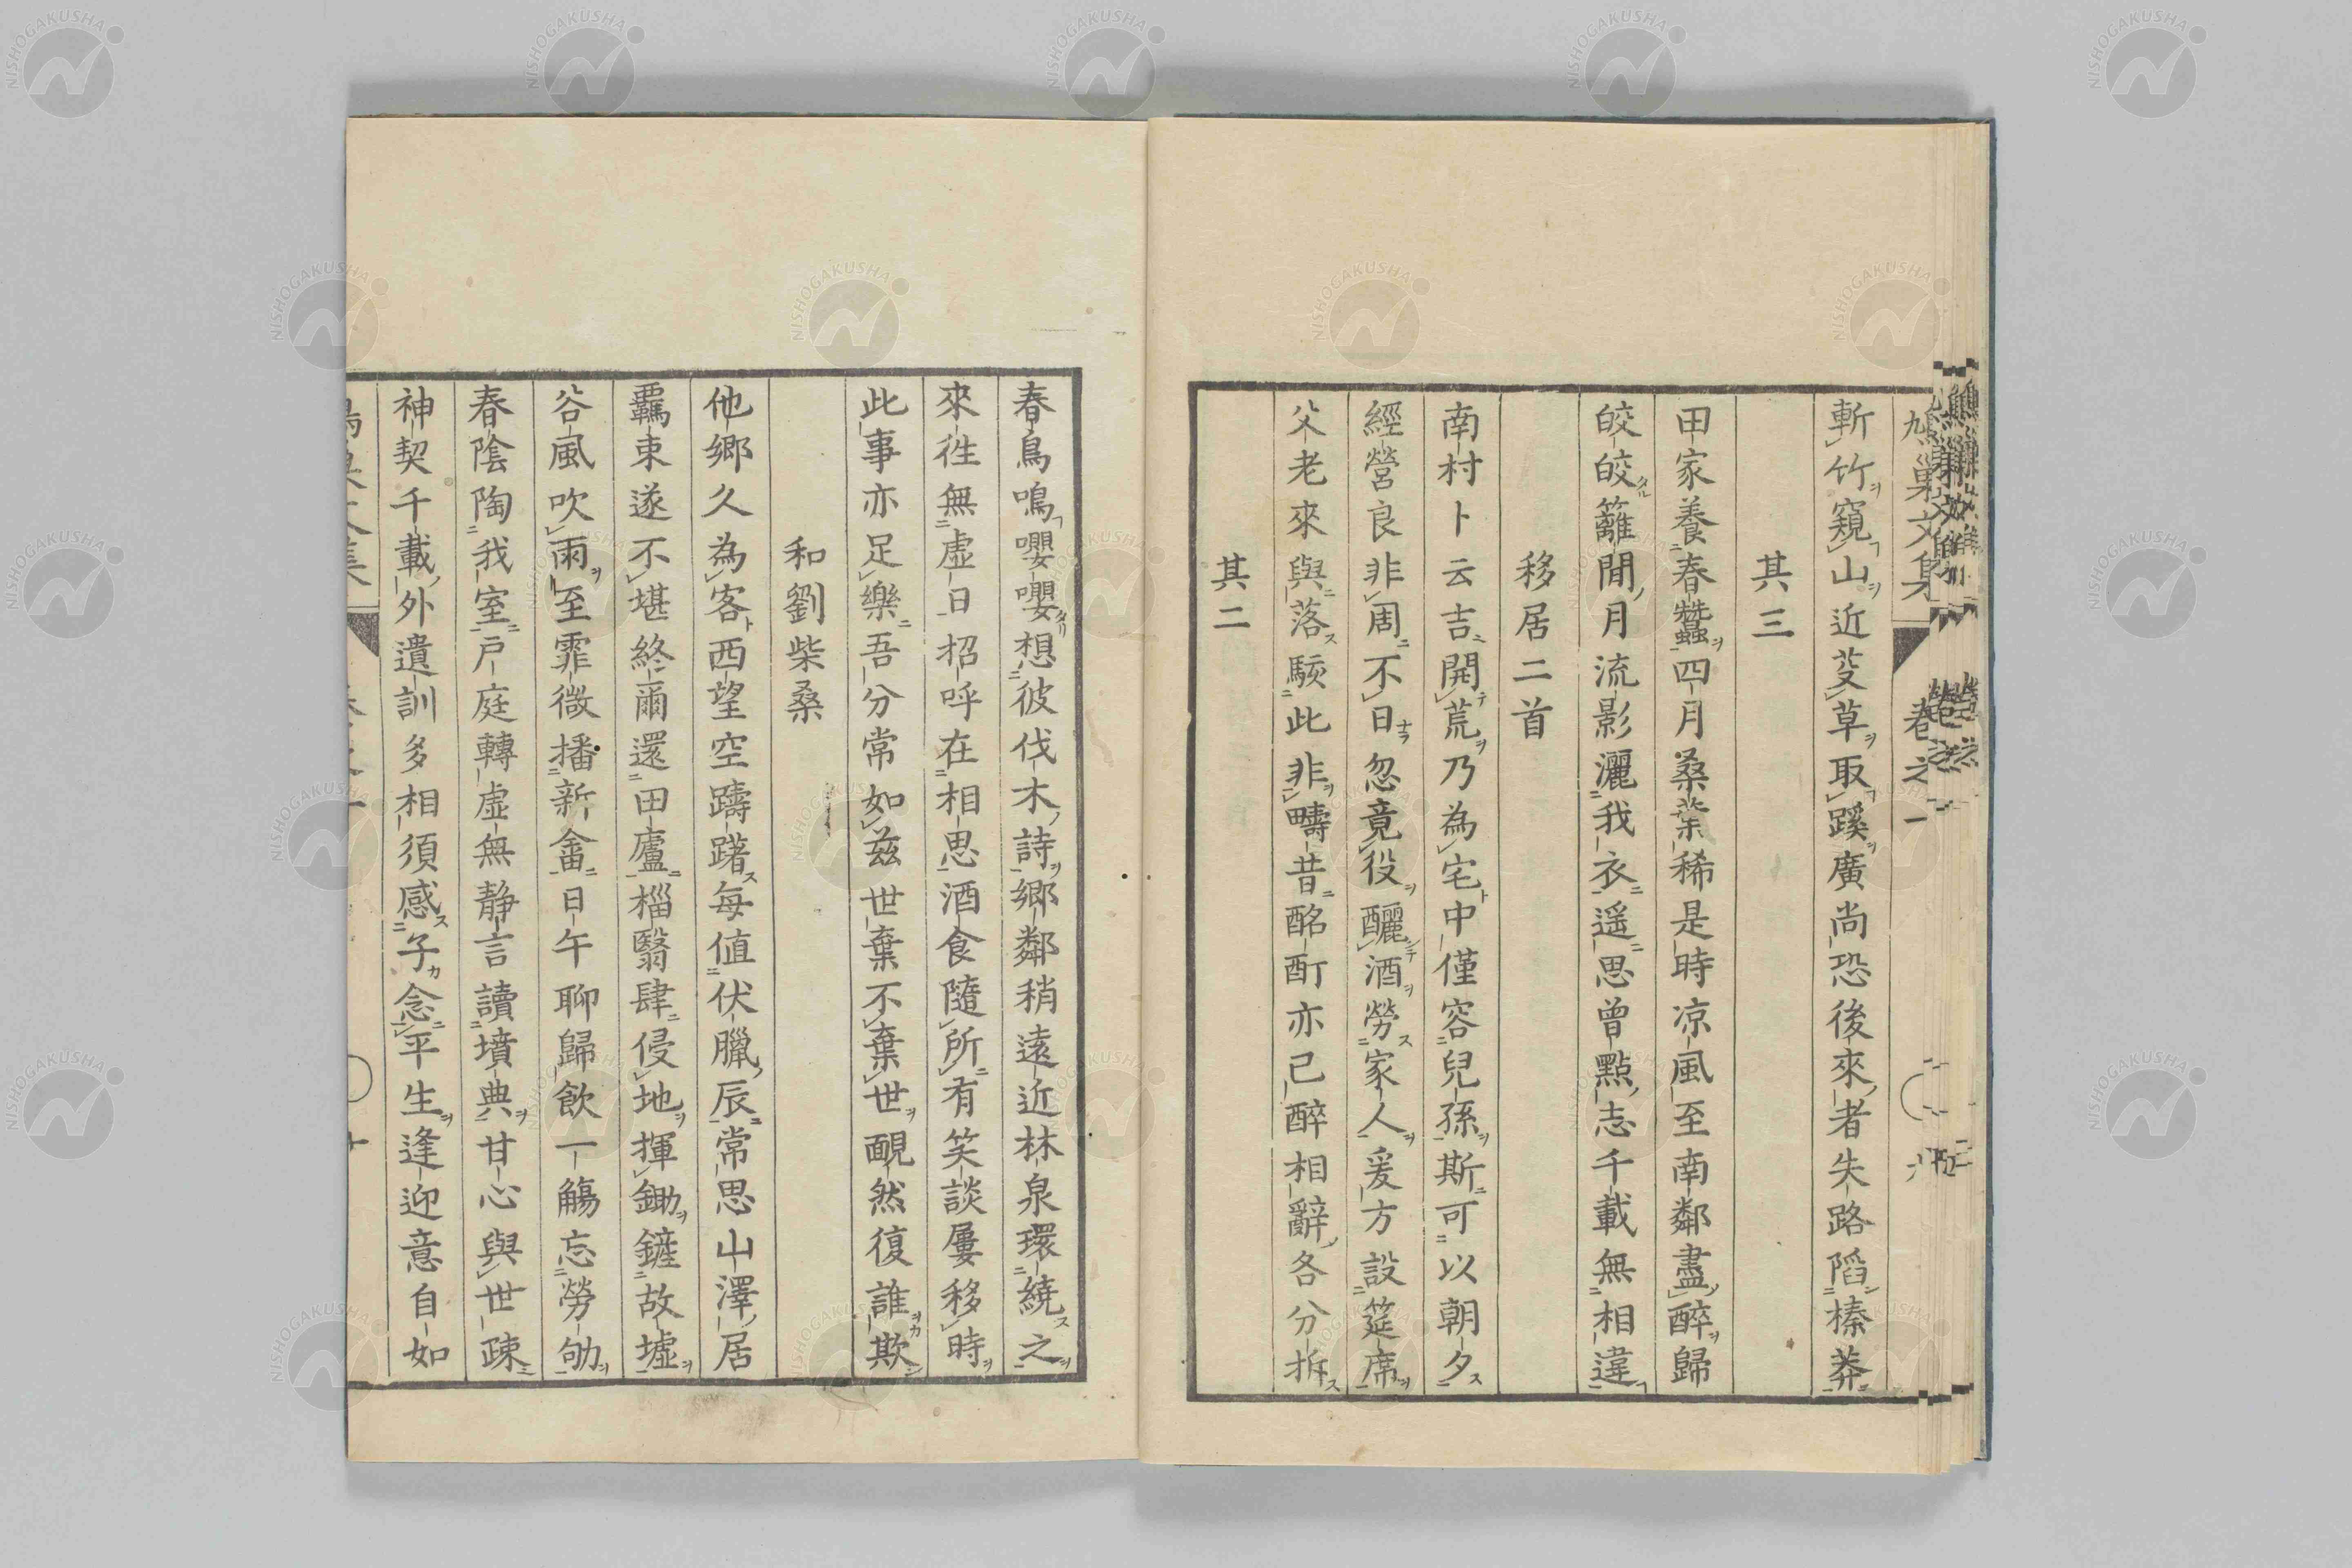 鳩巢文集 卷之一
斬竹窺山近芟草取蹊廣尚恐後來者失路陷榛莽
其三
田家養春蠶四月桑葉稀是時凉風至南鄰盡醉歸
皎皎籬間月流影灑我衣遥思曾點志千載無相違
移居二首
南村卜云吉開荒乃為宅中僅容兒孫斯可以朝夕
經營良非周不日忽竟役釃酒勞家人爰方設筵席
父老來與落駭此非疇昔酩酊亦已醉相辭各分拆
其二
春鳥鳴嚶嚶想彼伐木詩鄉鄰稍遠近林泉環繞之
來徃無虛日招呼在相思酒食隨所有笑談屢移時
此事亦足樂吾分常如兹世棄不棄世靦然復誰欺
和劉柴桑
他鄉久為客西望空躊躇每值伏臘辰常思山澤居
羈束遂不堪終爾還田廬椔翳肆侵地揮鋤鏟故墟
谷風吹雨至霏微播新畬日午聊歸飲一觴忘勞劬
春陰陶我室戶庭轉虛無静言讀墳典甘心與世疎
神契千載外遺訓多相須感子念平生逢迎意自如
NISHOGAKUSHA